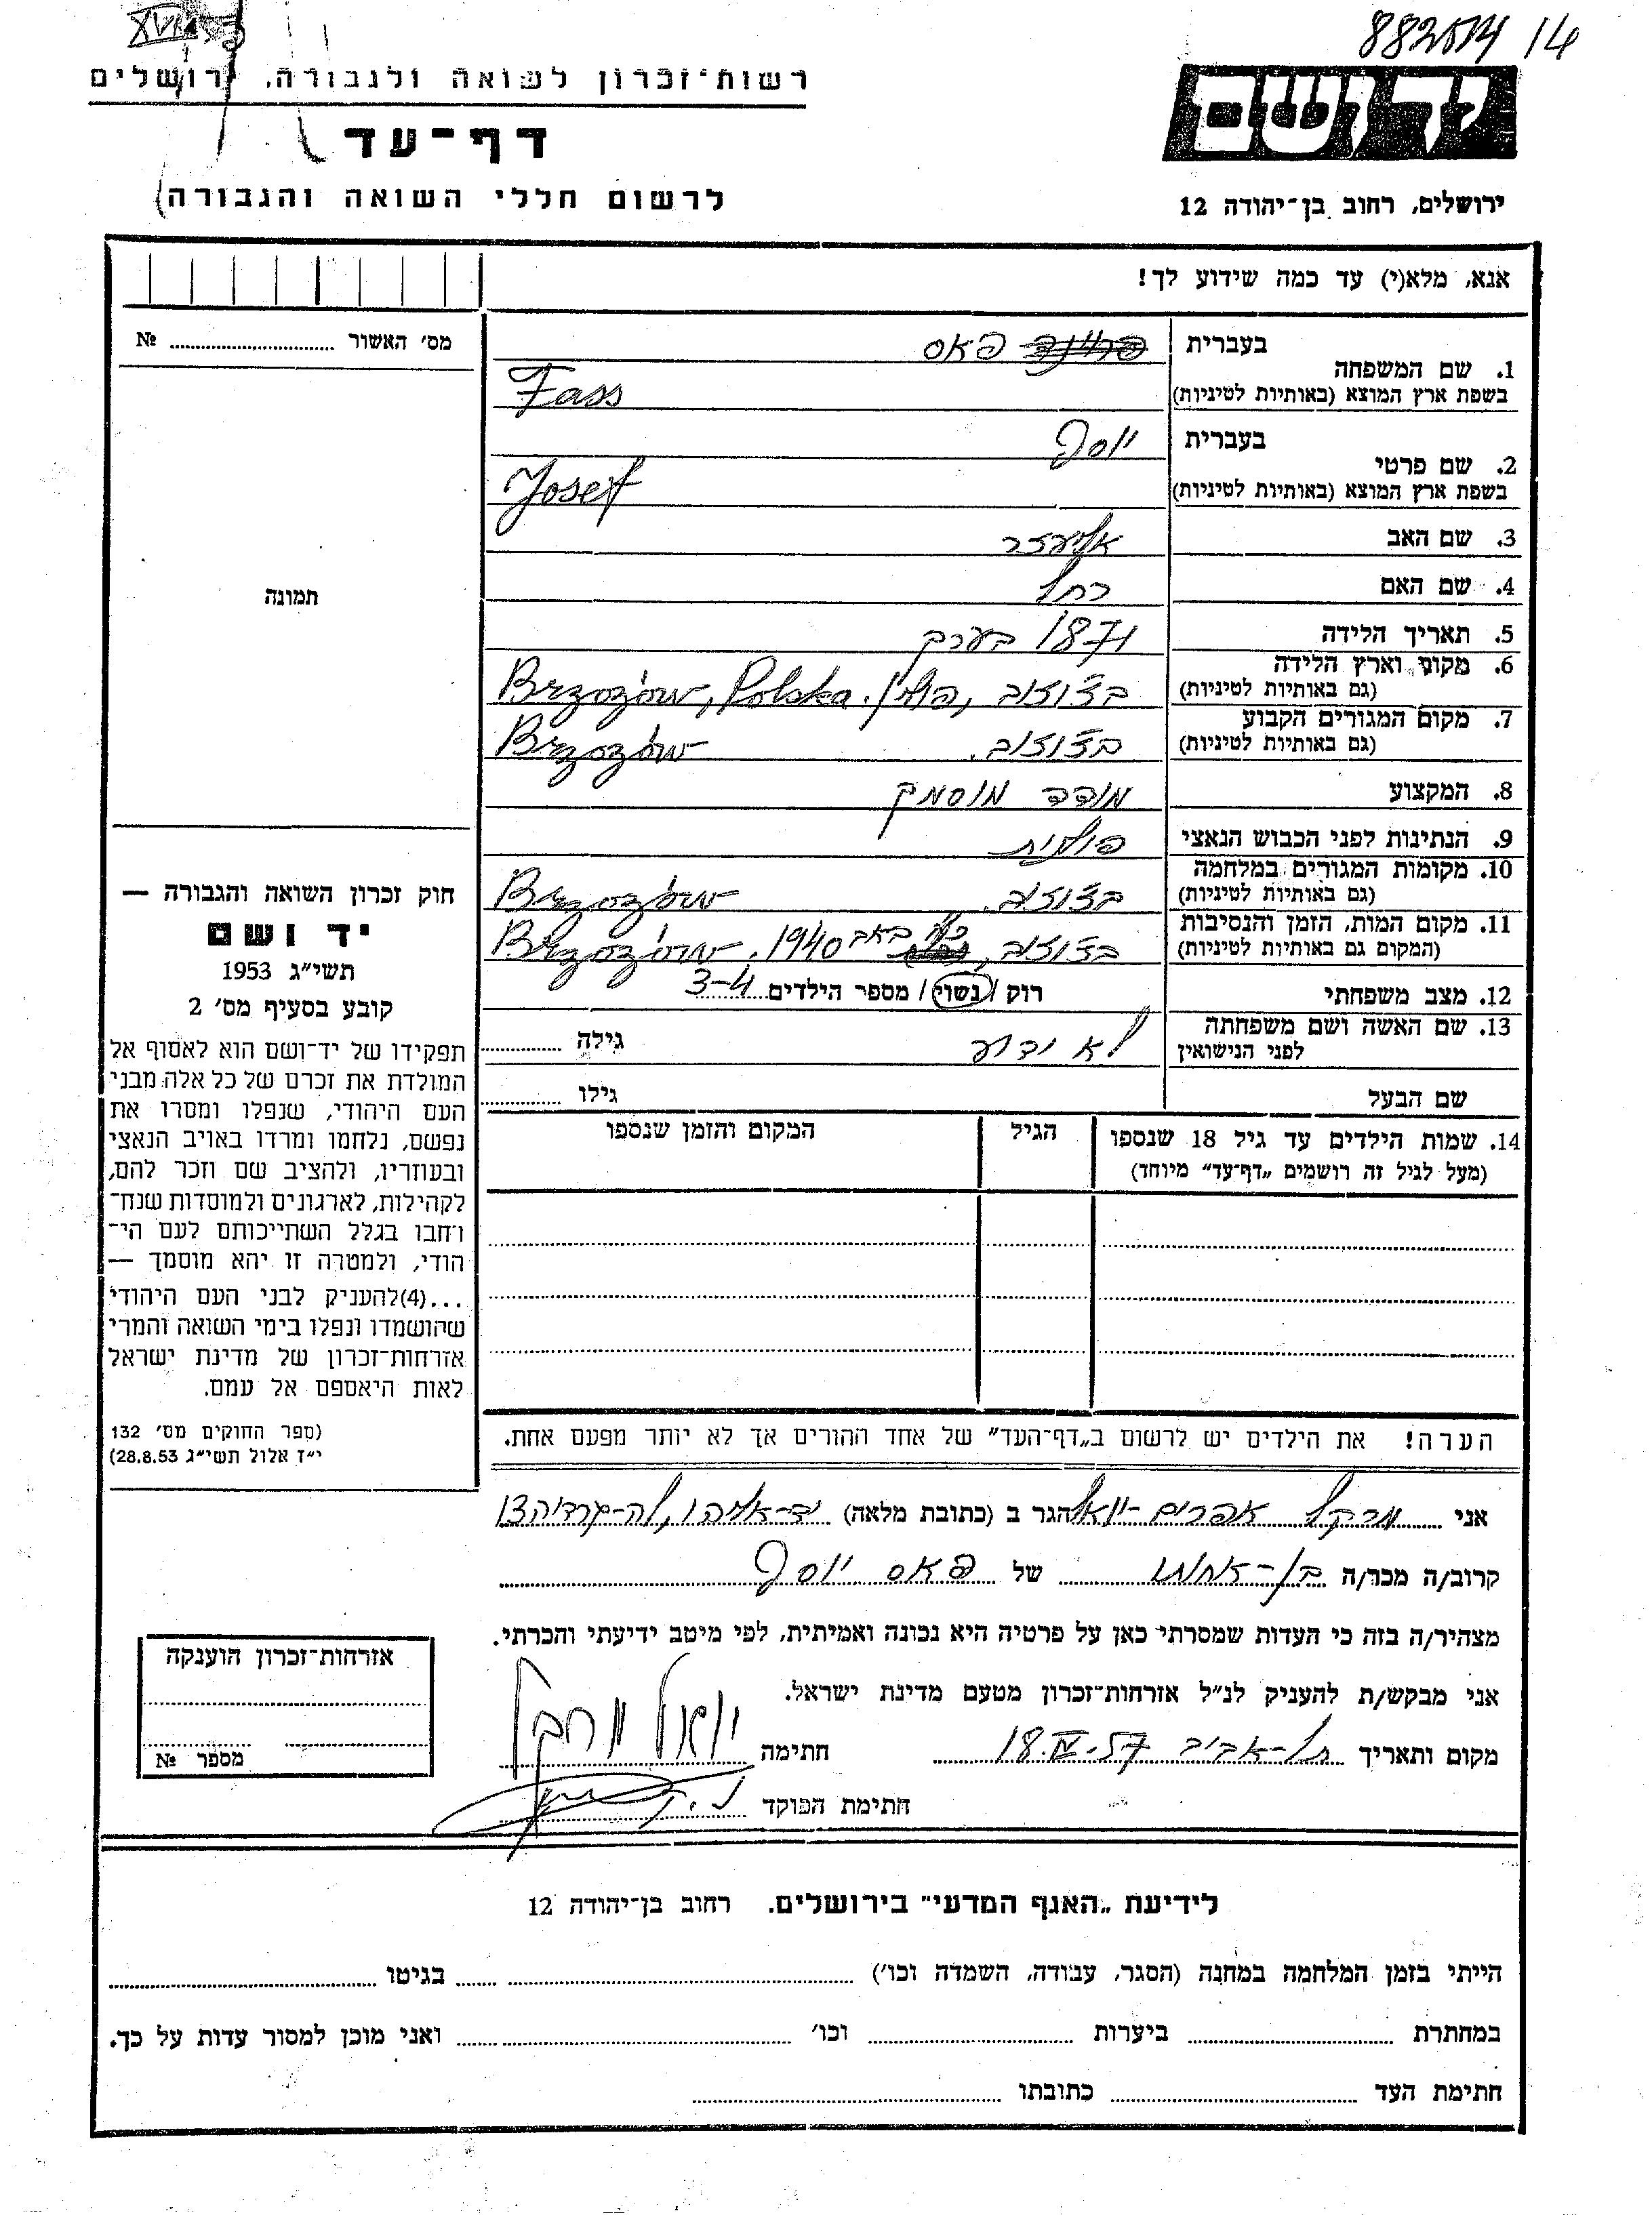 XVI
14
רשות־זכרון לשואה ולגבורה, ירושלים
דף־עד
לרשום חללי השואה והגבורה)
יד ושם
ירושלים, רחוב בן־יהודה 12
אנא, מלא(י) עד כמה שידוע לך!
מס׳ האשור ........ №
תמונה
1. שם המשפחה
בעברית פאס
בשפת ארץ המוצא (באותיות לטיניות) Fass
2. שם פרטי
בעברית יוסף
בשפת ארץ המוצא (באותיות לטיניות) Josef
3. שם האב אליעזר
4. שם האם רחל
5. תאריך הלידה 1871 בערך
6. מקום וארץ הלידה
(גם באותיות לטיניות) בז'וזוב, פולין. Brzozów, Polska
7. מקום המגורים הקבוע
(גם באותיות לטיניות) בז'וזוב. Brzozów
8. המקצוע מודד מוסמך
9. הנתינות לפני הכבוש הנאצי פולנית
10. מקומות המגורים במלחמה
(גם באותיות לטיניות) בז'וזוב. Brzozów
11. מקום המות, הזמן והנסיבות
(המקום גם באותיות לטיניות) בז'וזוב, באב 1940. Brzozów
12. מצב משפחתי רוק / נשוי / מספר הילדים 3-4
13. שם האשה ושם משפחתה
לפני הנישואין לא ידוע גילה ........
שם הבעל גילו ........
14. שמות הילדים עד גיל 18 שנספו הגיל המקום והזמן שנספו
(מעל לגיל זה רושמים „דף־עד״ מיוחד)
הערה! את הילדים יש לרשום ב„דף־העד״ של אחד ההורים אך לא יותר מפעם אחת.
חוק זכרון השואה והגבורה —
יד ושם
תשי״ג 1953
קובע בסעיף מס׳ 2
תפקידו של יד־ושם הוא לאסוף אל
המולדת את זכרם של כל אלה מבני
העם היהודי, שנפלו ומסרו את
נפשם, נלחמו ומרדו באויב הנאצי
ובעוזריו, ולהציב שם וזכר להם,
לקהילות, לארגונים ולמוסדות שנח־
רחבו בגלל השתייכותם לעם הי־
הודי, ולמטרה זו יהא מוסמך —
...(4)להעניק לבני העם היהודי
שהושמדו ונפלו בימי השואה והמרי
אזרחות־זכרון של מדינת ישראל
לאות היאספם אל עמם.
(ספר החוקים מס׳ 132
י״ז אלול תשי״ג 28.8.53)
אני מרקל אפרים-יואל הגר ב (כתובת מלאה) יד-אליהו,
קרוב/ה מכר/ה בן-אחותו של פאס יוסף
מצהיר/ה בזה כי העדות שמסרתי כאן על פרטיה היא נכונה ואמיתית, לפי מיטב ידיעתי והכרתי.
אני מבקש/ת להעניק לנ״ל אזרחות־זכרון מטעם מדינת ישראל.
מקום ותאריך תל-אביב 18.IV.57 חתימה יואל מרקל
חתימת הפוקד
אזרחות־זכרון הוענקה
מספר №
לידיעת „האגף המדעי״ בירושלים. רחוב בן־יהודה 12
הייתי בזמן המלחמה במחנה (הסגר, עבודה, השמדה וכו׳) ........ בגיטו ........
במחתרת ........ ביערות ........ וכו׳ ........ ואני מוכן למסור עדות על כך.
חתימת העד ........ כתובתו ........